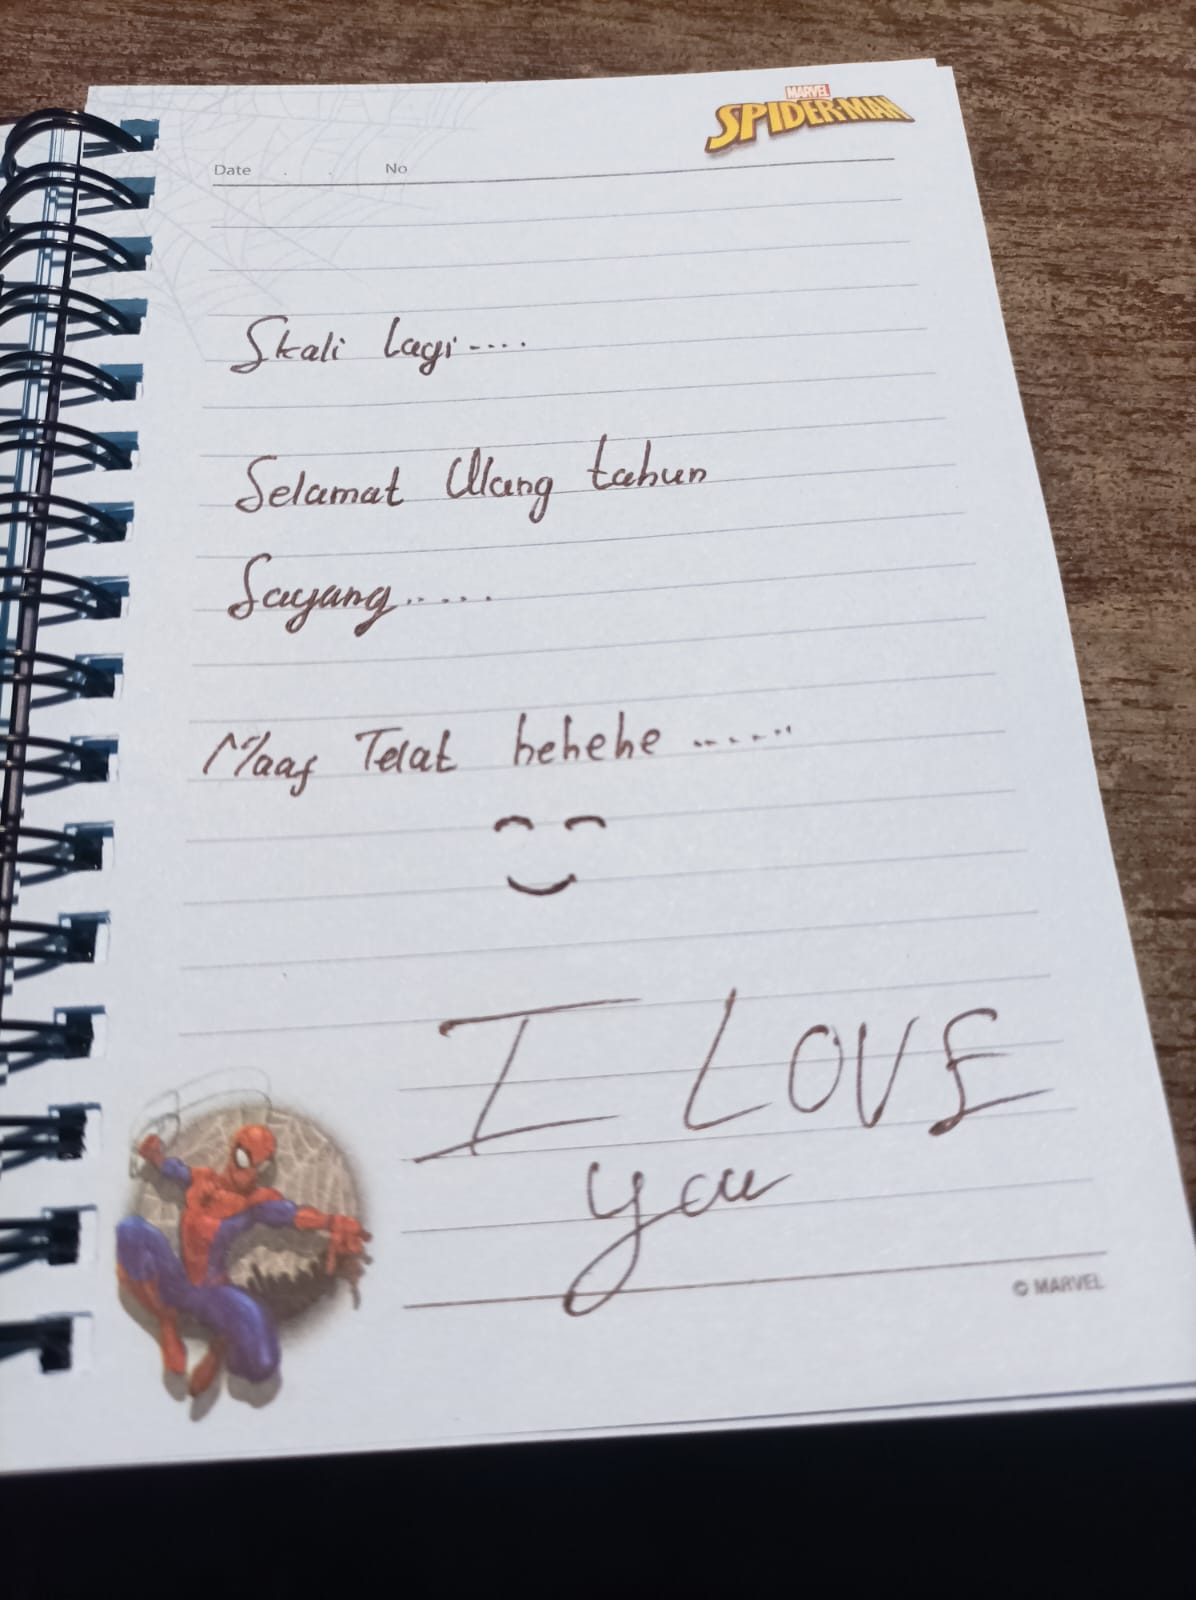 MARVEL
SPIDER-MAN
Date . . No
Skali Lagi ....
Selamat Ulang tahun
Sayang .....
Maaf Telat hehehe ......
I LOVE
you
© MARVEL